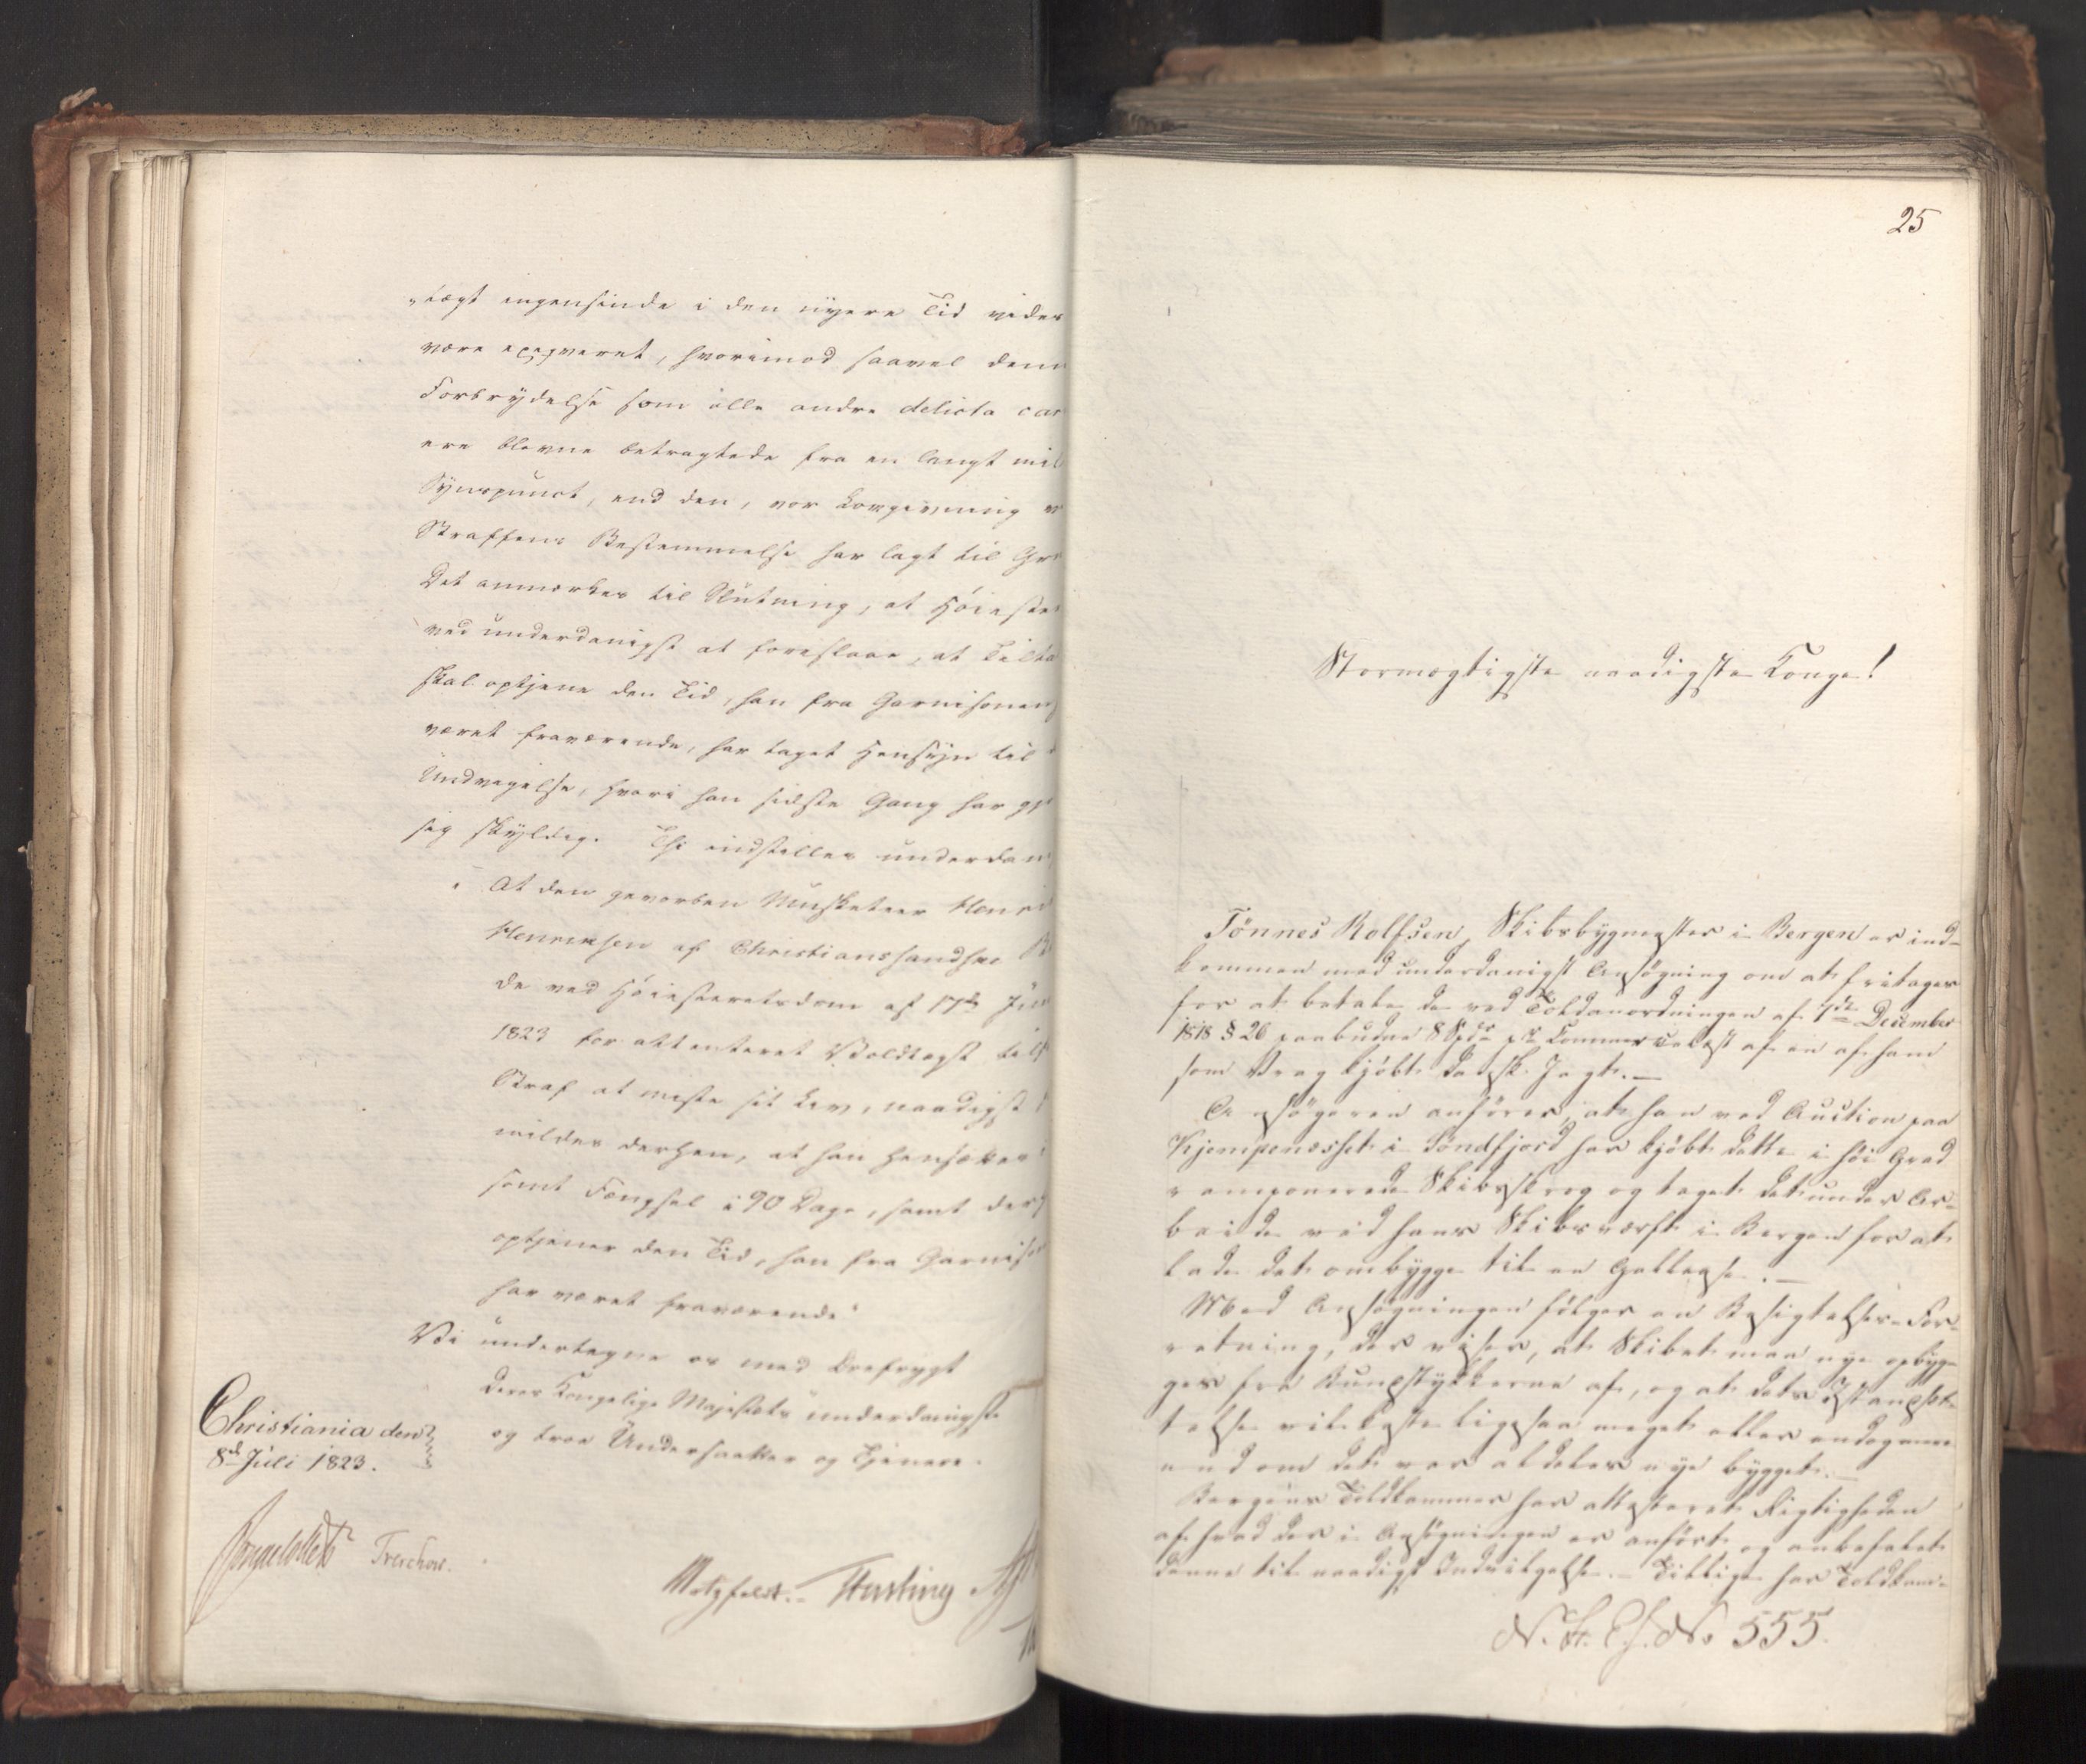 „tægt ingensinde i den nyere Tid vides
være exeqveret, hvorimod saavel denn
Forbrydelse som alle andre delicta car
ere blevne betragtede fra en langt mil
Synspunct, end den, vor Lovgivning v
Straffens Bestemmelse har lagt til Gr
Det anmærkes til Slutning, at Høieste
ved underdanigst at foreslaae, at Tilta
skal optjene den Tid, han fra Garnisonen
været fraværende, har taget Hensyn til
Undvigelse, hvori han sidste Gang har gj
sig skyldig. Thi indstilles underdan
„At den gevorben Musketeer Henri
Henriksen af Christianssandske B
de ved Høiesteretsdom af 17de Jun
1823 for attenteret Voldtægt til
Straf at miste sit Liv, naadigst
mildes derhen, at han hensættes i
samt Fængsel i 90 Dage, samt der
optjener den Tid, han fra Garnison
har været fraværende“
Vi undertegne os med Ærefrygt
Deres Kongelige Majestæts underdanigste
og troe Undersaatter og Tjenere.
Christiania den
8d Juli 1823.
Treschow.
Motzfeldt. Fasting
25
Stormægtigste naadigste Konge!
Tönnes Rolfsen, Skibsbygmester i Bergen er ind-
kommen med underdanigst Ansøgning om at fritages
for at betale de ved Toldanordningen af 7de December
1818 § 26 paabudne 8 Spd pr Commercelæst af en af ham
som Vrag kjøbt dansk Jagt. —
Ansøgeren anfører, at han ved Auction paa
Kjempenæsset i Söndfjord har kjøbt dette i høi Grad
ramponerede Skibsskrog og taget det under Ar-
beide ved hans Skibsværft i Bergen for at
lade det ombygge til en Galleas. —
Med Ansøgningen følger en Besigtelses-For-
retning, der viser, at Skibet maa nye opbyg-
ges fra Bundstykkerne af, og at dets Istandsæt-
telse vil koste ligesaa meget eller endog mere
end om det var aldeles nye bygget. —
Bergens Toldkammer har attesteret Rigtigheden
af hvad der i Ansøgningen er anført og anbefalet
denne til naadigst Indvilgelse. — Tillige har Toldkam-
No 555.